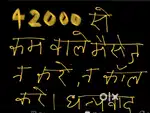 42000 से
कम वाले मैसेज
न करें, न कॉल
करें। धन्यवाद
olx